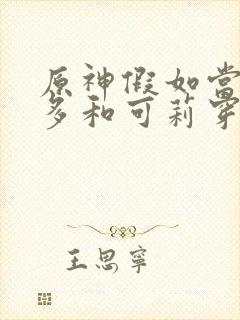 原神假如当
多和可莉穿
王思宁